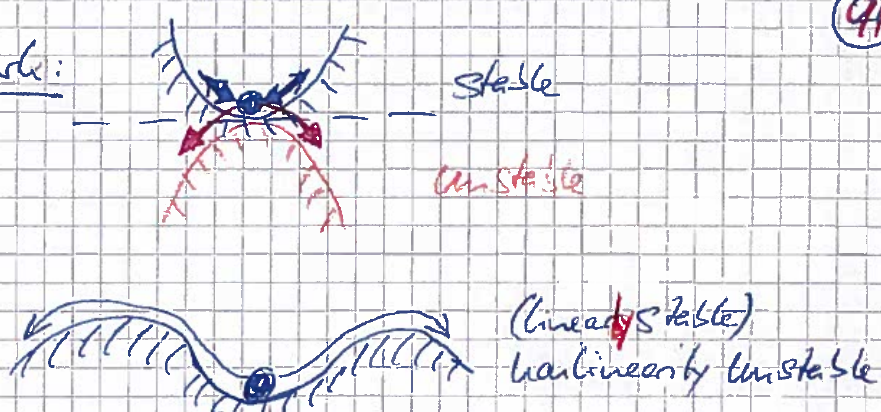 stable
unstable
(linearly stable)
nonlinearity unstable